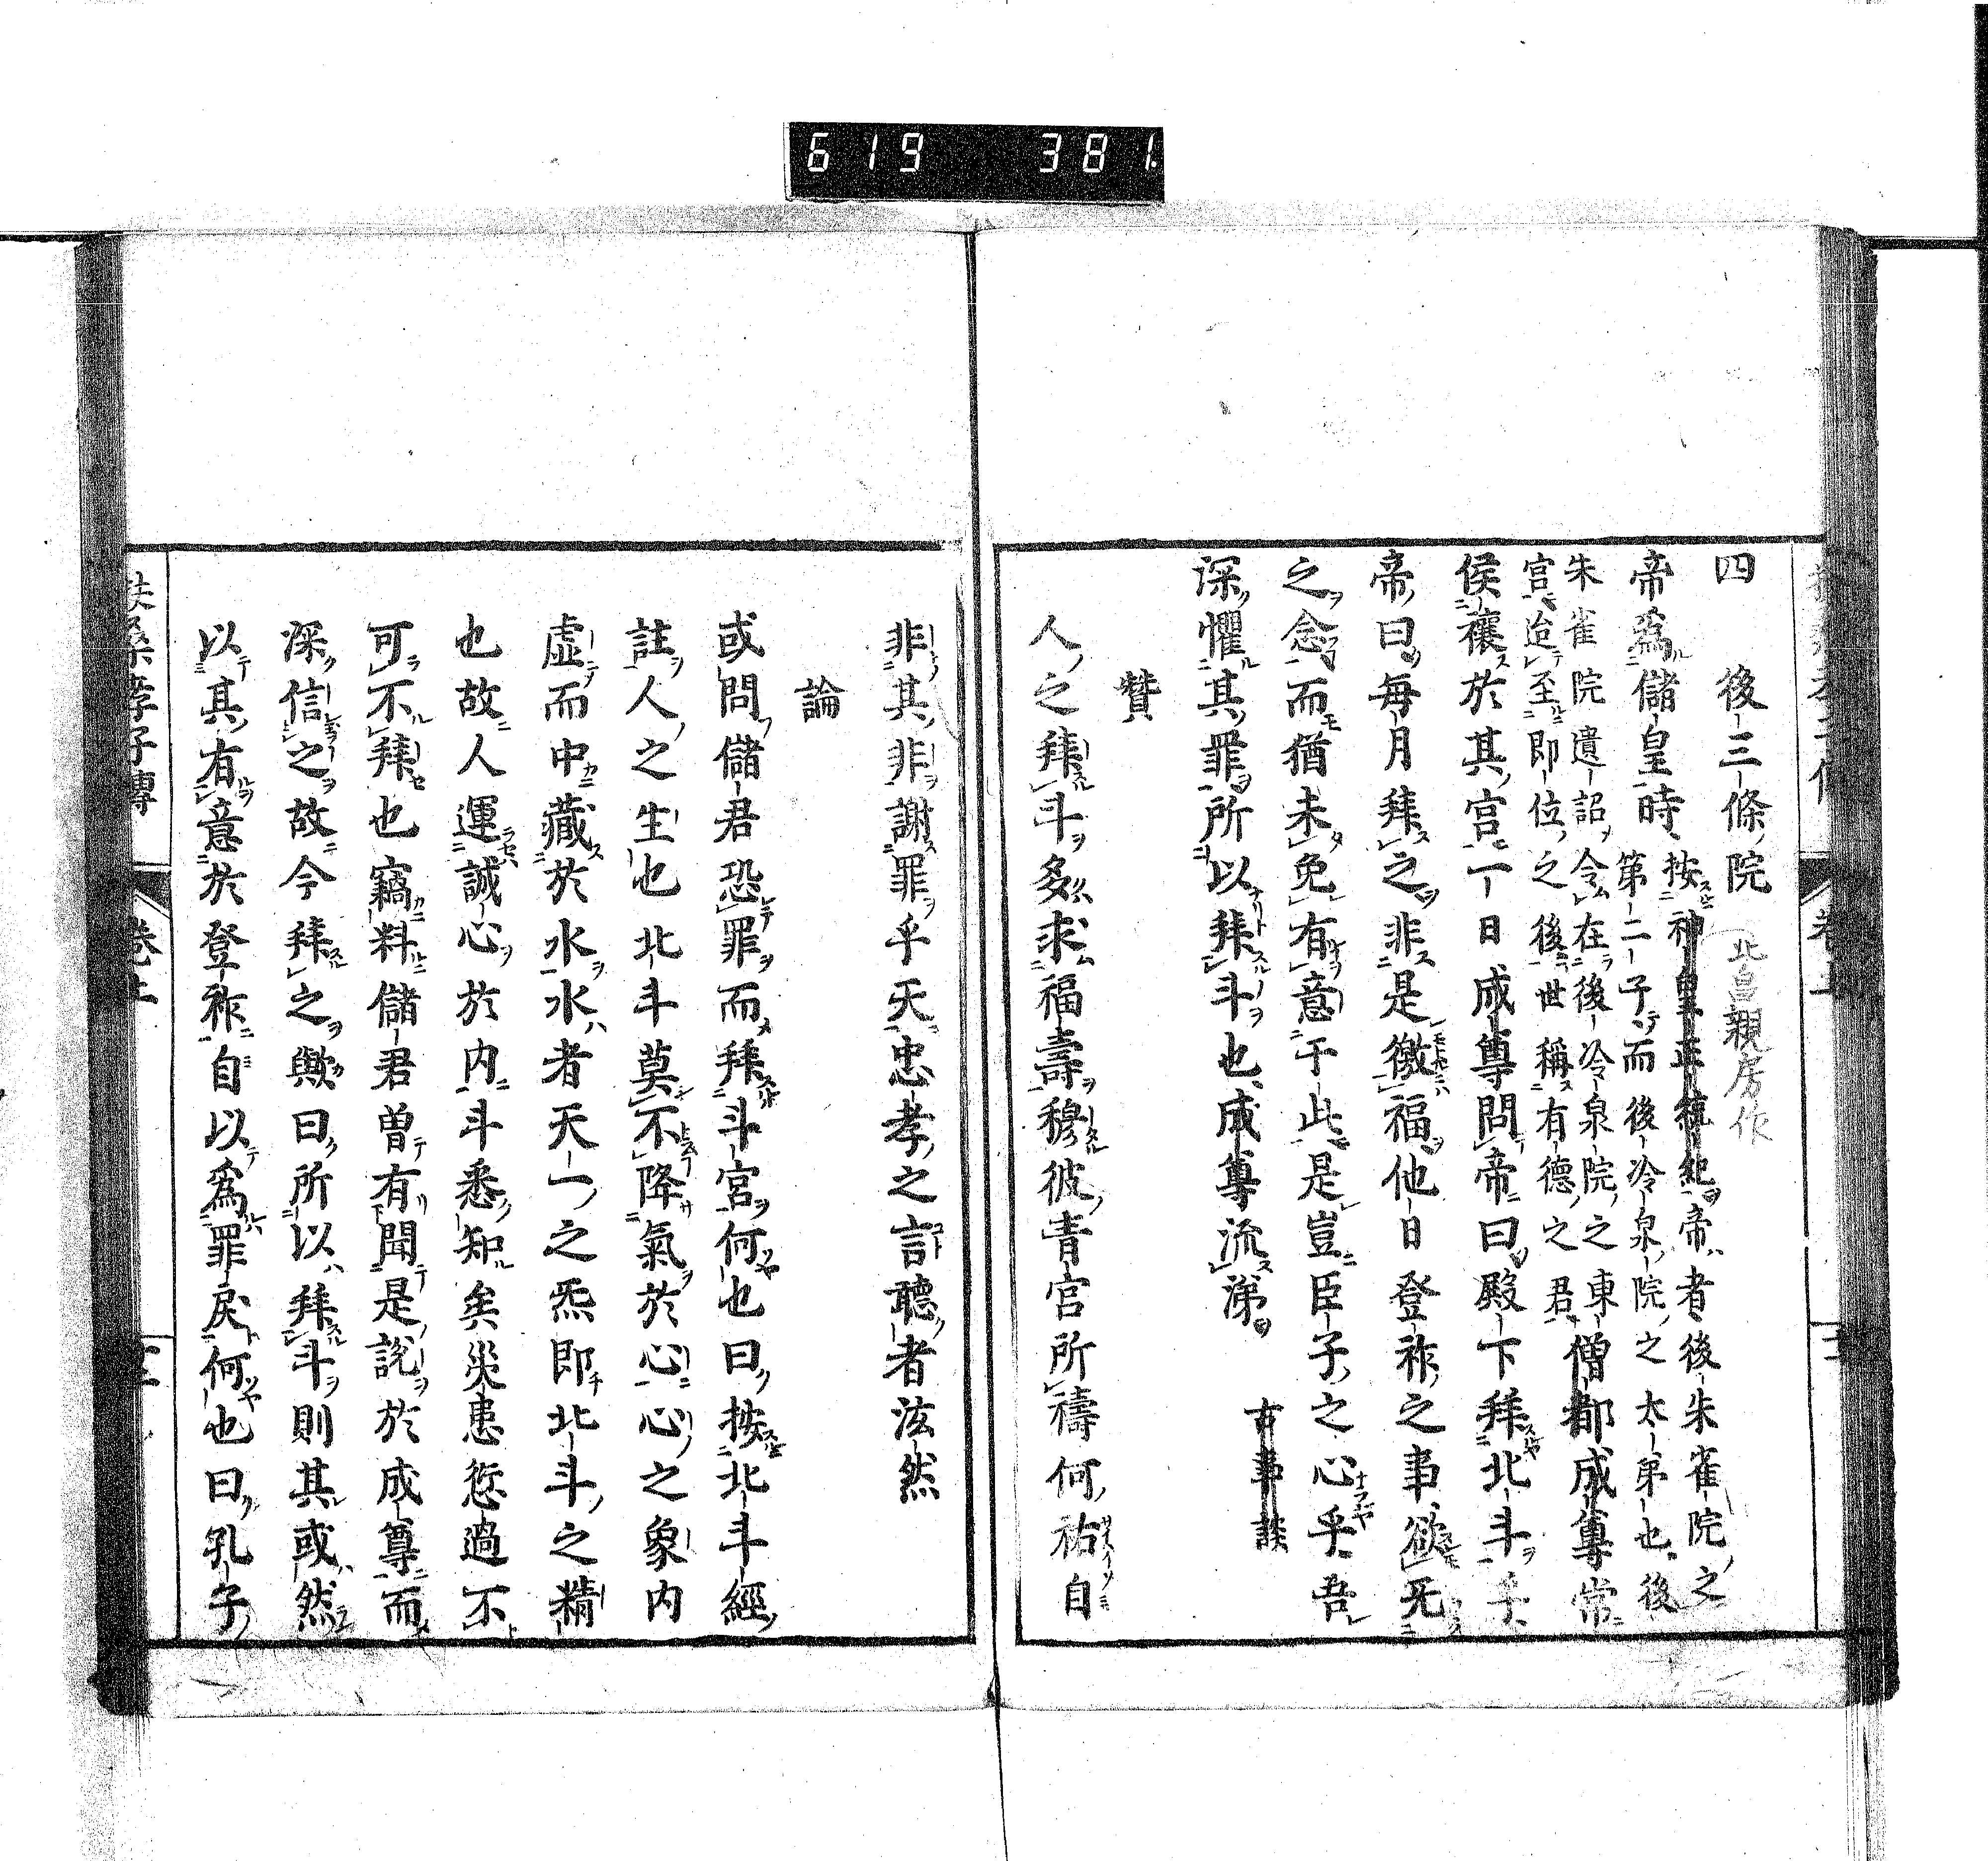 619 381
四 後三條院 北畠親房作
帝爲儲皇時按神皇正統紀帝者後朱雀院之
第二子而後冷泉院之太弟也後
朱雀院遺詔令在後冷泉院之東
宮迨至即位之後世稱有德之君僧都成尊常
侯禳於其宮一日成尊問帝曰殿下拜北斗乎
帝曰每月拜之非是徼福他日登祚之事欲旡
之念而猶未免有意于此是豈臣子之心乎吾
深懼其罪所以拜斗也成尊流涕 古事談
贊
人之拜斗多求福壽穆彼青宮所禱何祐自
非其非謝罪乎天忠孝之言聽者泫然
論
或問儲君恐罪而拜斗宮何也曰按北斗經
註人之生也北斗莫不降氣於心心之象内
虛而中藏於水水者天一之炁即北斗之精
也故人運誠心於内斗悉知矣災患愆過不
可不拜也竊料儲君曽有聞是說於成尊而
深信之故今拜之歟曰所以拜斗則其或然
以其有意於登祚自以爲罪戾何也曰孔子
扶桑孝子傳 卷上